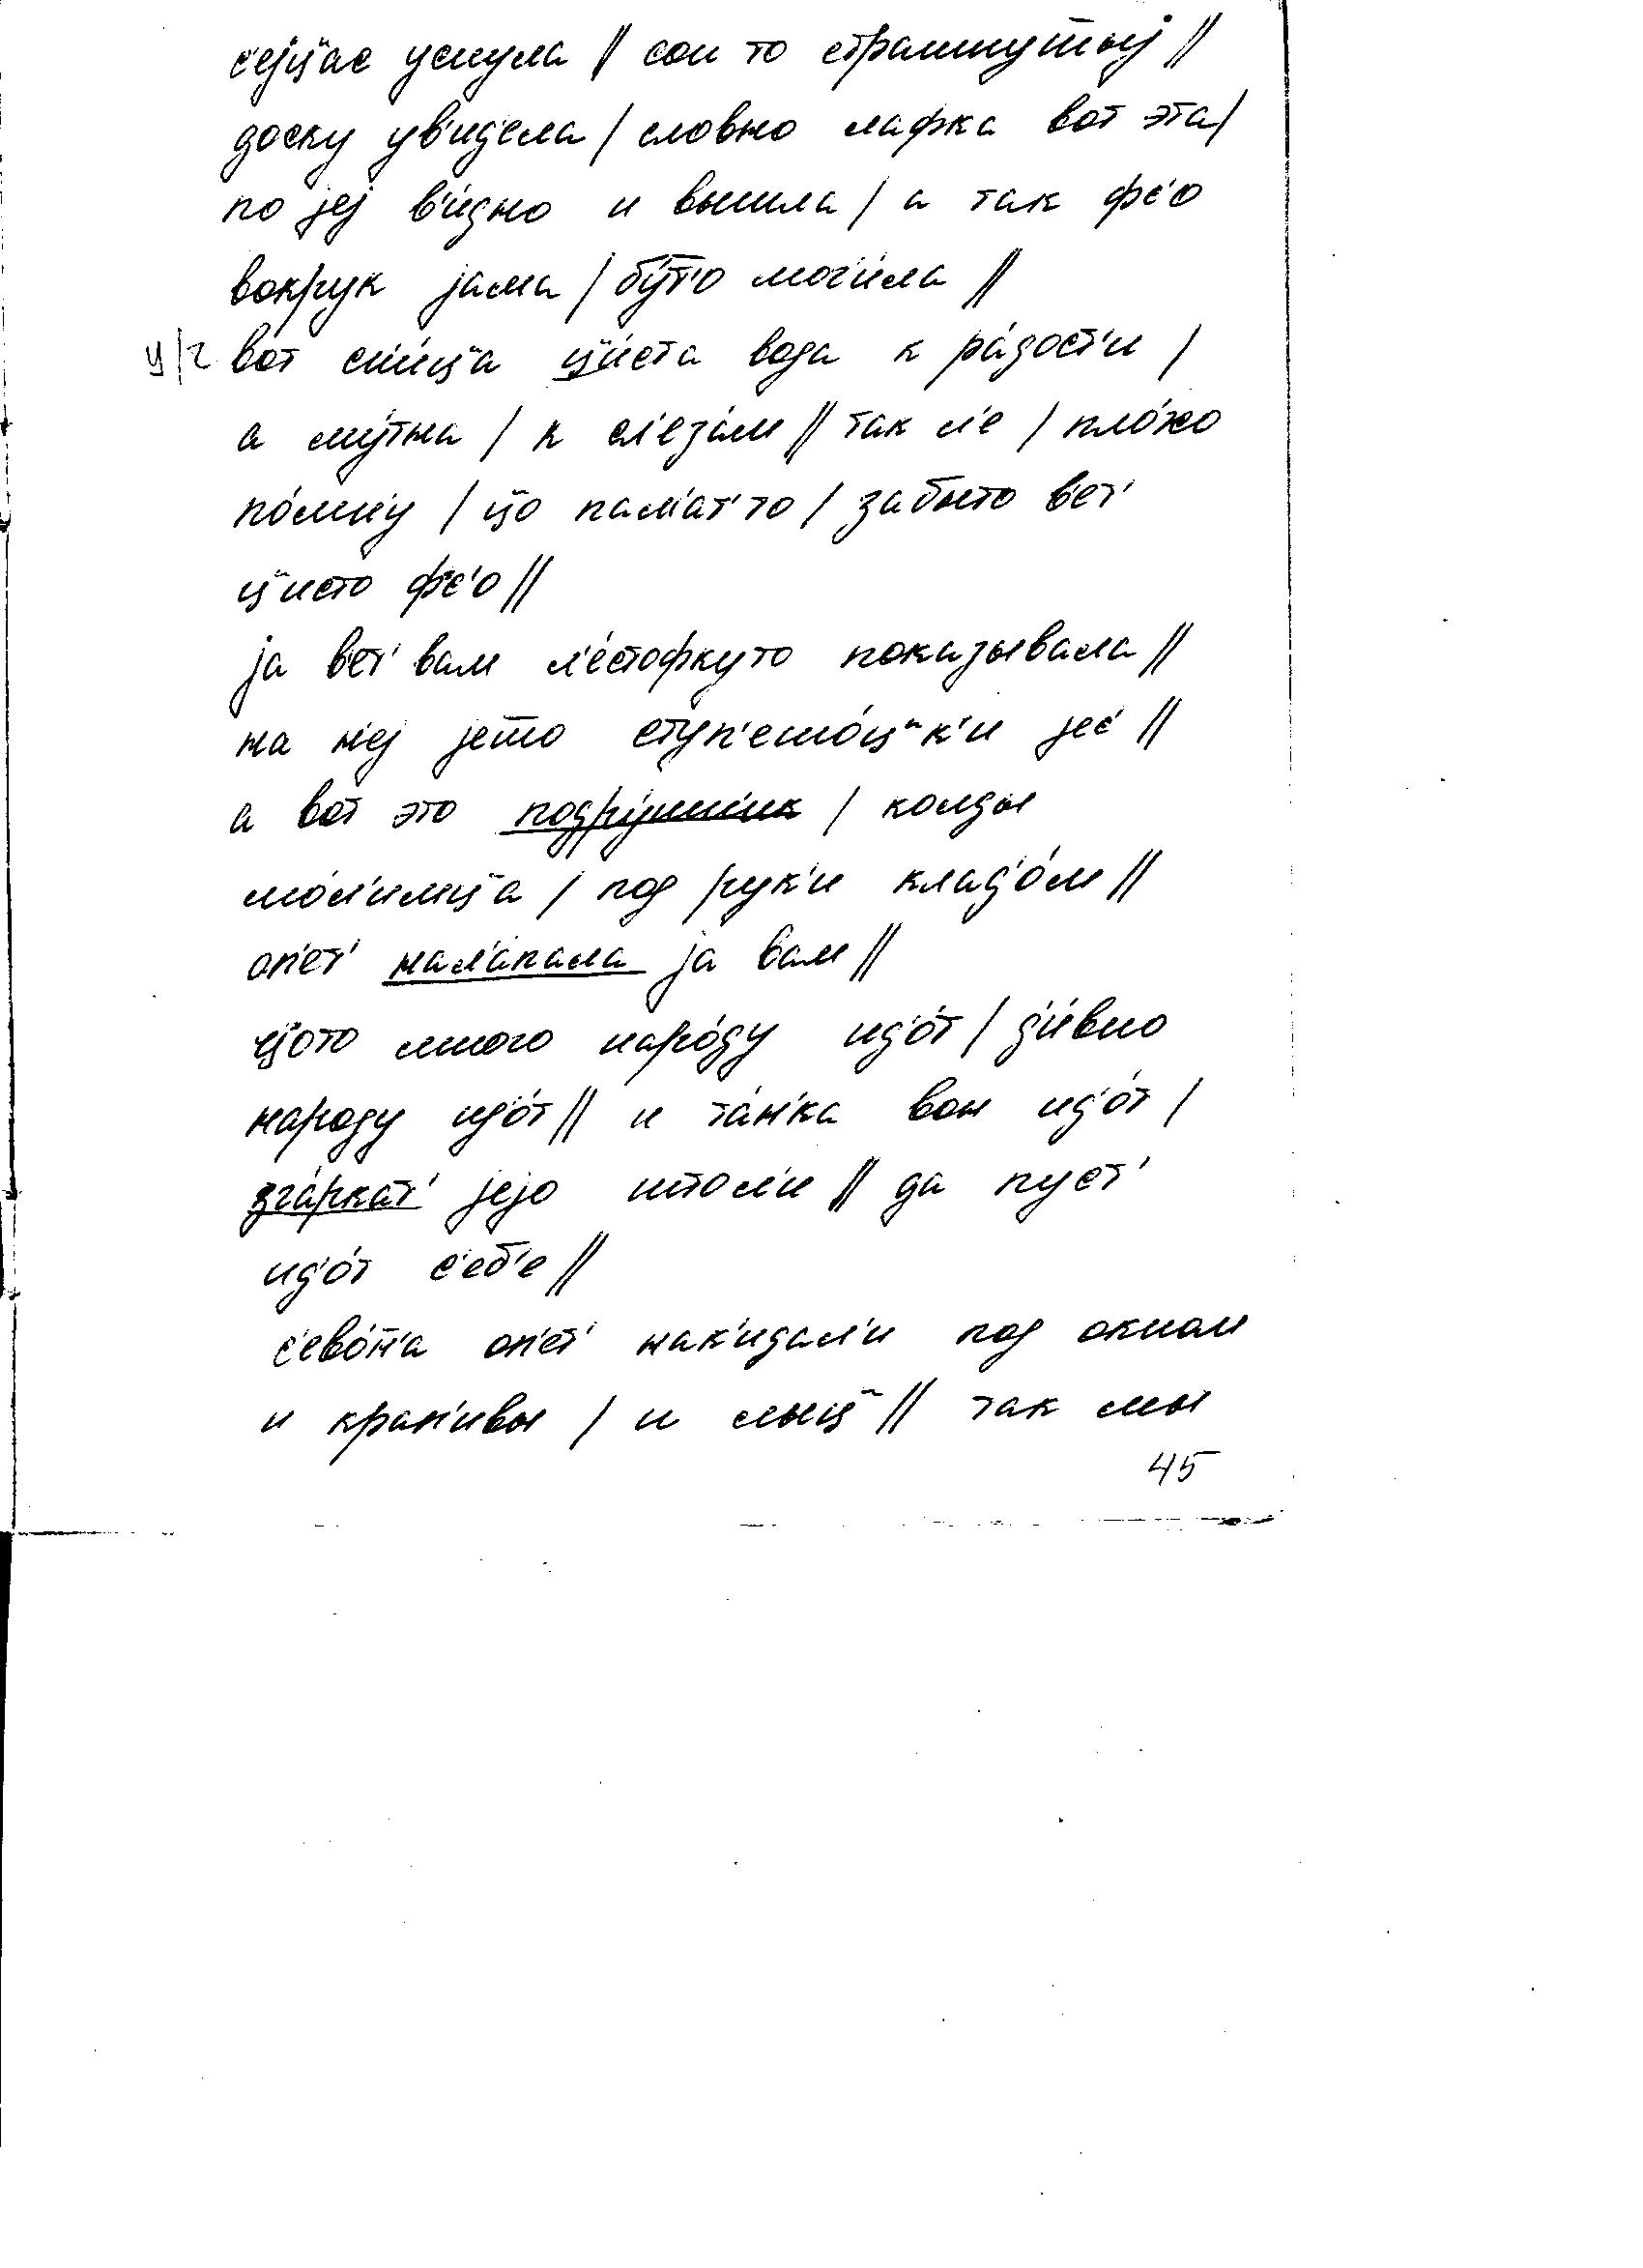 с'ејц"ас уснула // сон то страшнут̅ыј //
доску ув'ид'ела / словно лафка вот эта /
по јеј в'идно и вышла / а так фс'о
вокрук јама / бу́т̅'о мог'и́ла //
ц/ч во́т сн'и́ц̅а ц"и́ста вода к ра́дост'и /
а му́тна / к сл'еза́м // так л'е / пло́хо
по́мн'у / цо пам'ат' то / забыто в'ет'
ц"исто фс'о //
ја в'ет' вам л'е́стофку то показывала //
на н'еј јет̅о ступ'ешо́ц"к'и јес' //
а вот это подру́шн'ик / колды
мо́л'имц̅а / под рук'и клад'о́м //
оп'ет' нал'а́пала ја вам //
цото много наро́ду ид'о́т / д'и́вно
народу ид'о́т // и та́н'ка вон ид'о́т /
зга́ркат' јејо штол'и // да пуст'
ид'о́т с'еб'е //
с'ево́н̅'а оп'ет' нак'идал'и под окном
и крап'ивы / и лыц" // так мы
45